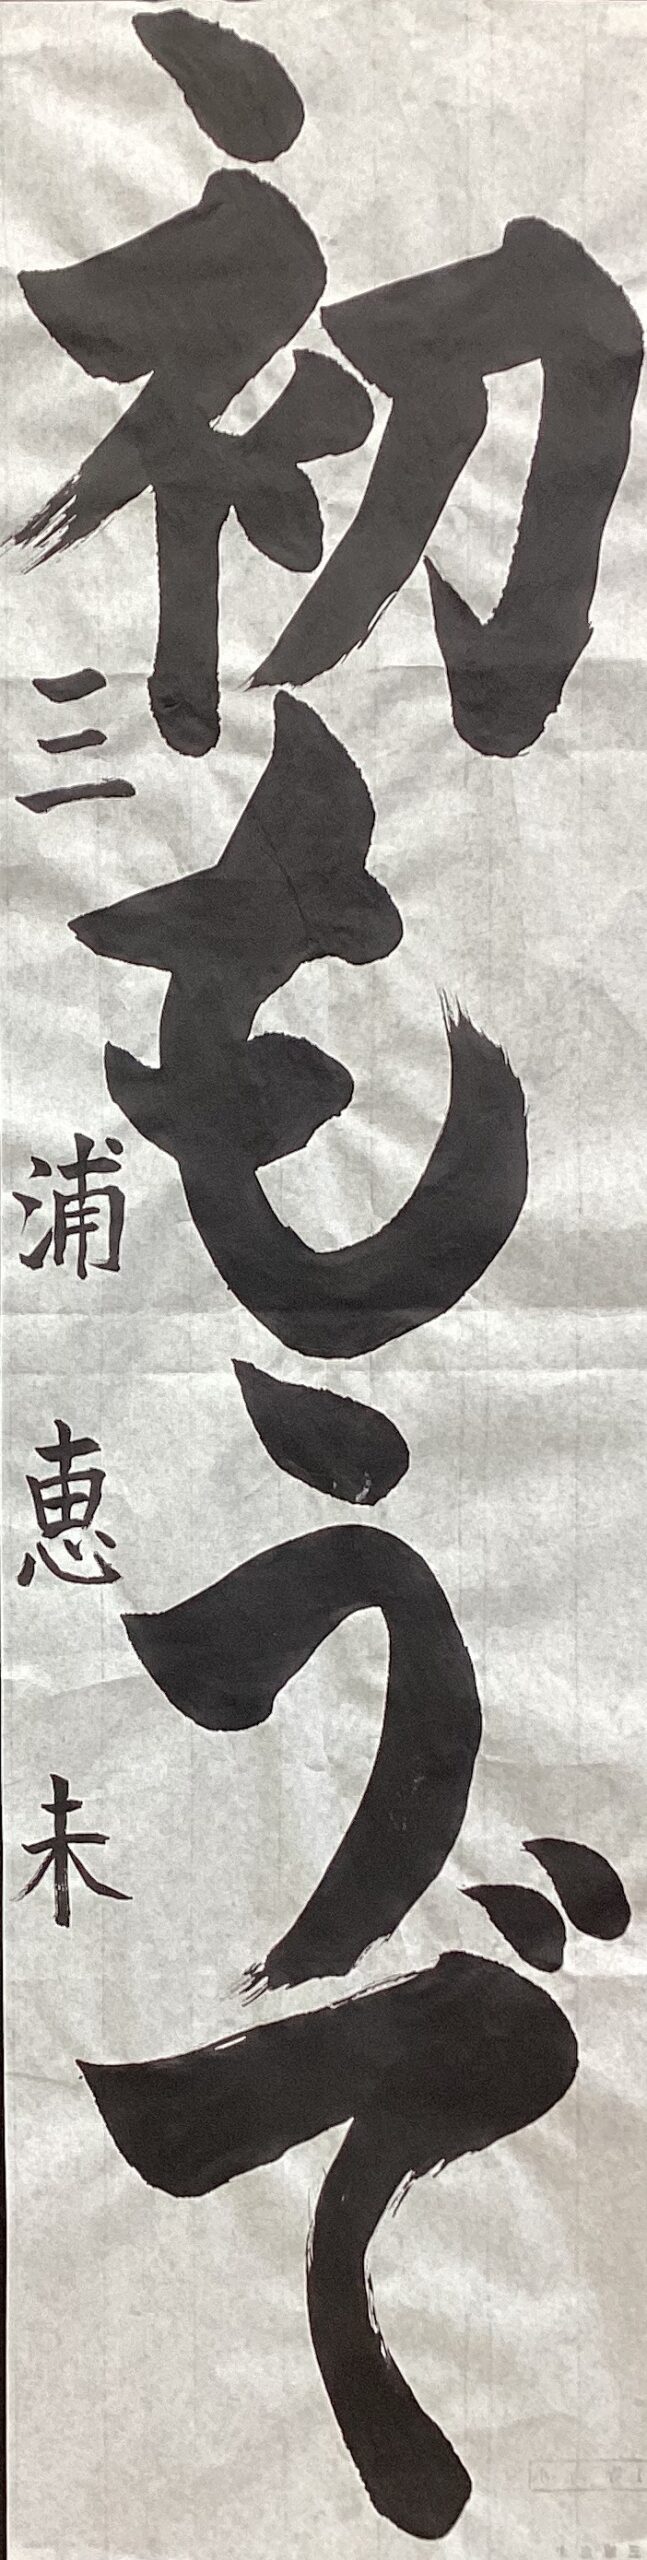 初もうで
三浦恵未